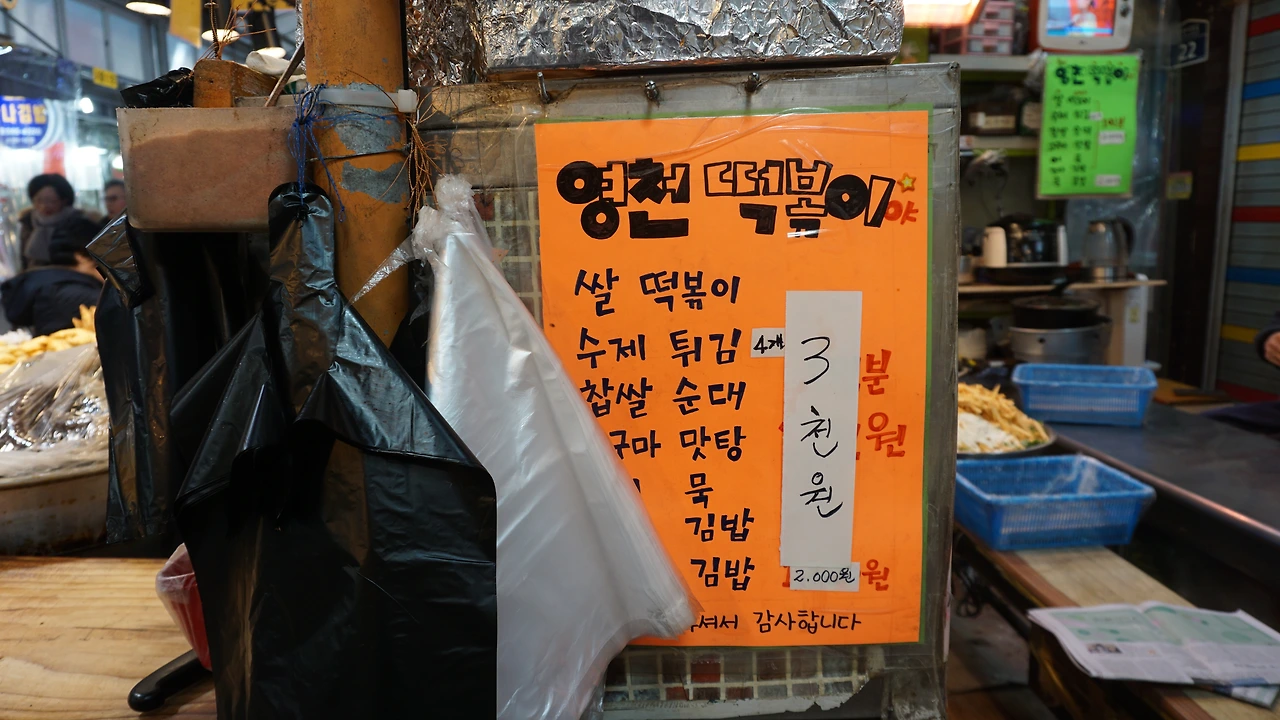 영천 떡볶이야
쌀 떡볶이
수제 튀김 4개
찹쌀 순대
구마 맛탕
묵
김밥
김밥
3천원
분
원
2.000원 원
셔서 감사합니다
나김밥
영천 떡볶이
22